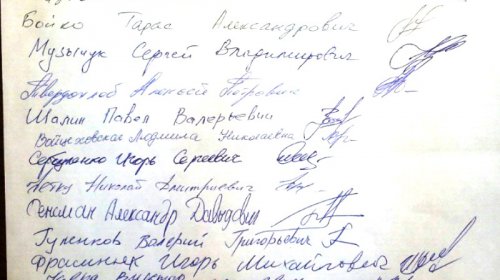 Бойко Тарас Александрович
Музычук Сергей Владимирович
Твердохлеб Анатолий Петрович
Шалин Павел Валерьевич
Войцеховская Людмила Николаевна
Игорь Сергеевич
Петку Николай Дмитриевич
Генсман Александр Давыдович
Гуленков Валерий Григорьевич
Фрасиняк Игорь Михайлович